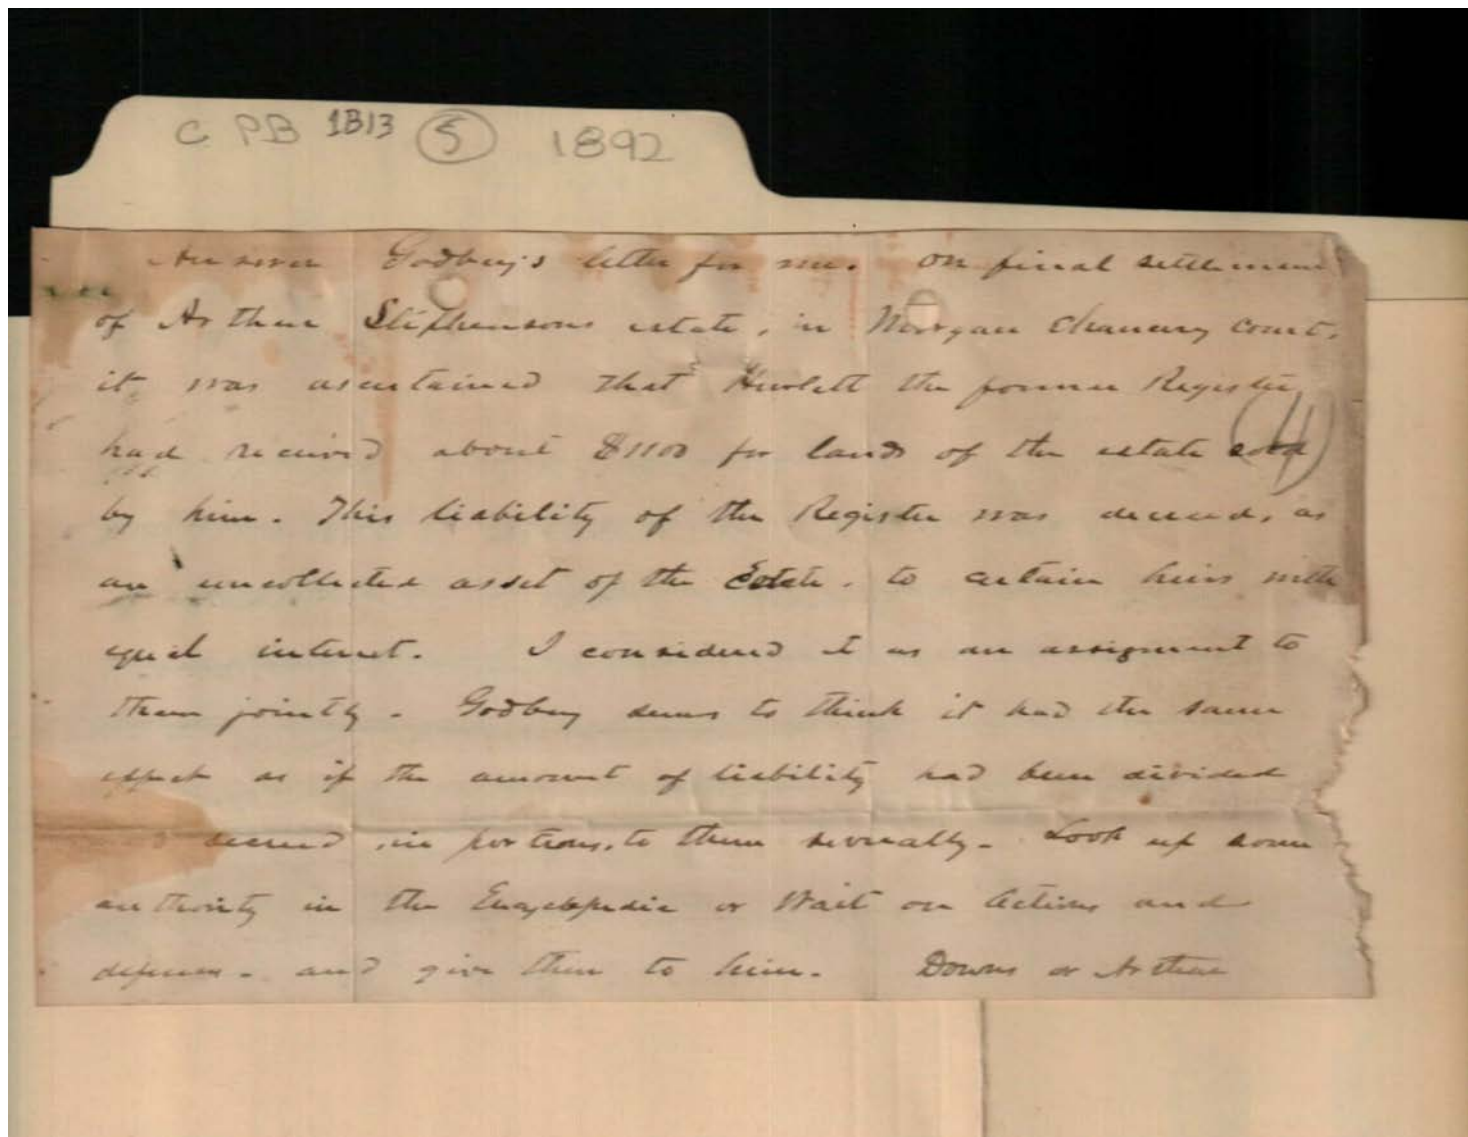 C PB 1B13 5 1892
Answer Godbey's letter for me. On final settlement
of Arthur Stephensons estate, in Morgan Chancery court,
it was ascertained that Hewlett the former Register
had received about $1100 for lands of the estate sold
(4)
by him. This liability of the Register was decreed, as
an uncollected asset of the Estate. to certain heirs with
equal interest. I considered it as an assignment to
them jointly. Godbey seems to think it had the same
effect as if the amount of liability had been divided
decreed, in portions, to them severally. Look up some
authority in the Encyclopedia or Wait on Actions and
defenses. and give them to him. Downs or Arthur